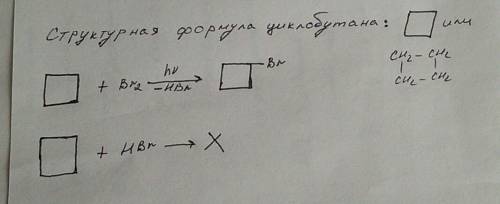 Структурная формула циклобутана: □ или
CH₂ - CH₂
CH₂ - CH₂
□ + Br₂ hν → -HBr □ - Br
□ + HBr → X